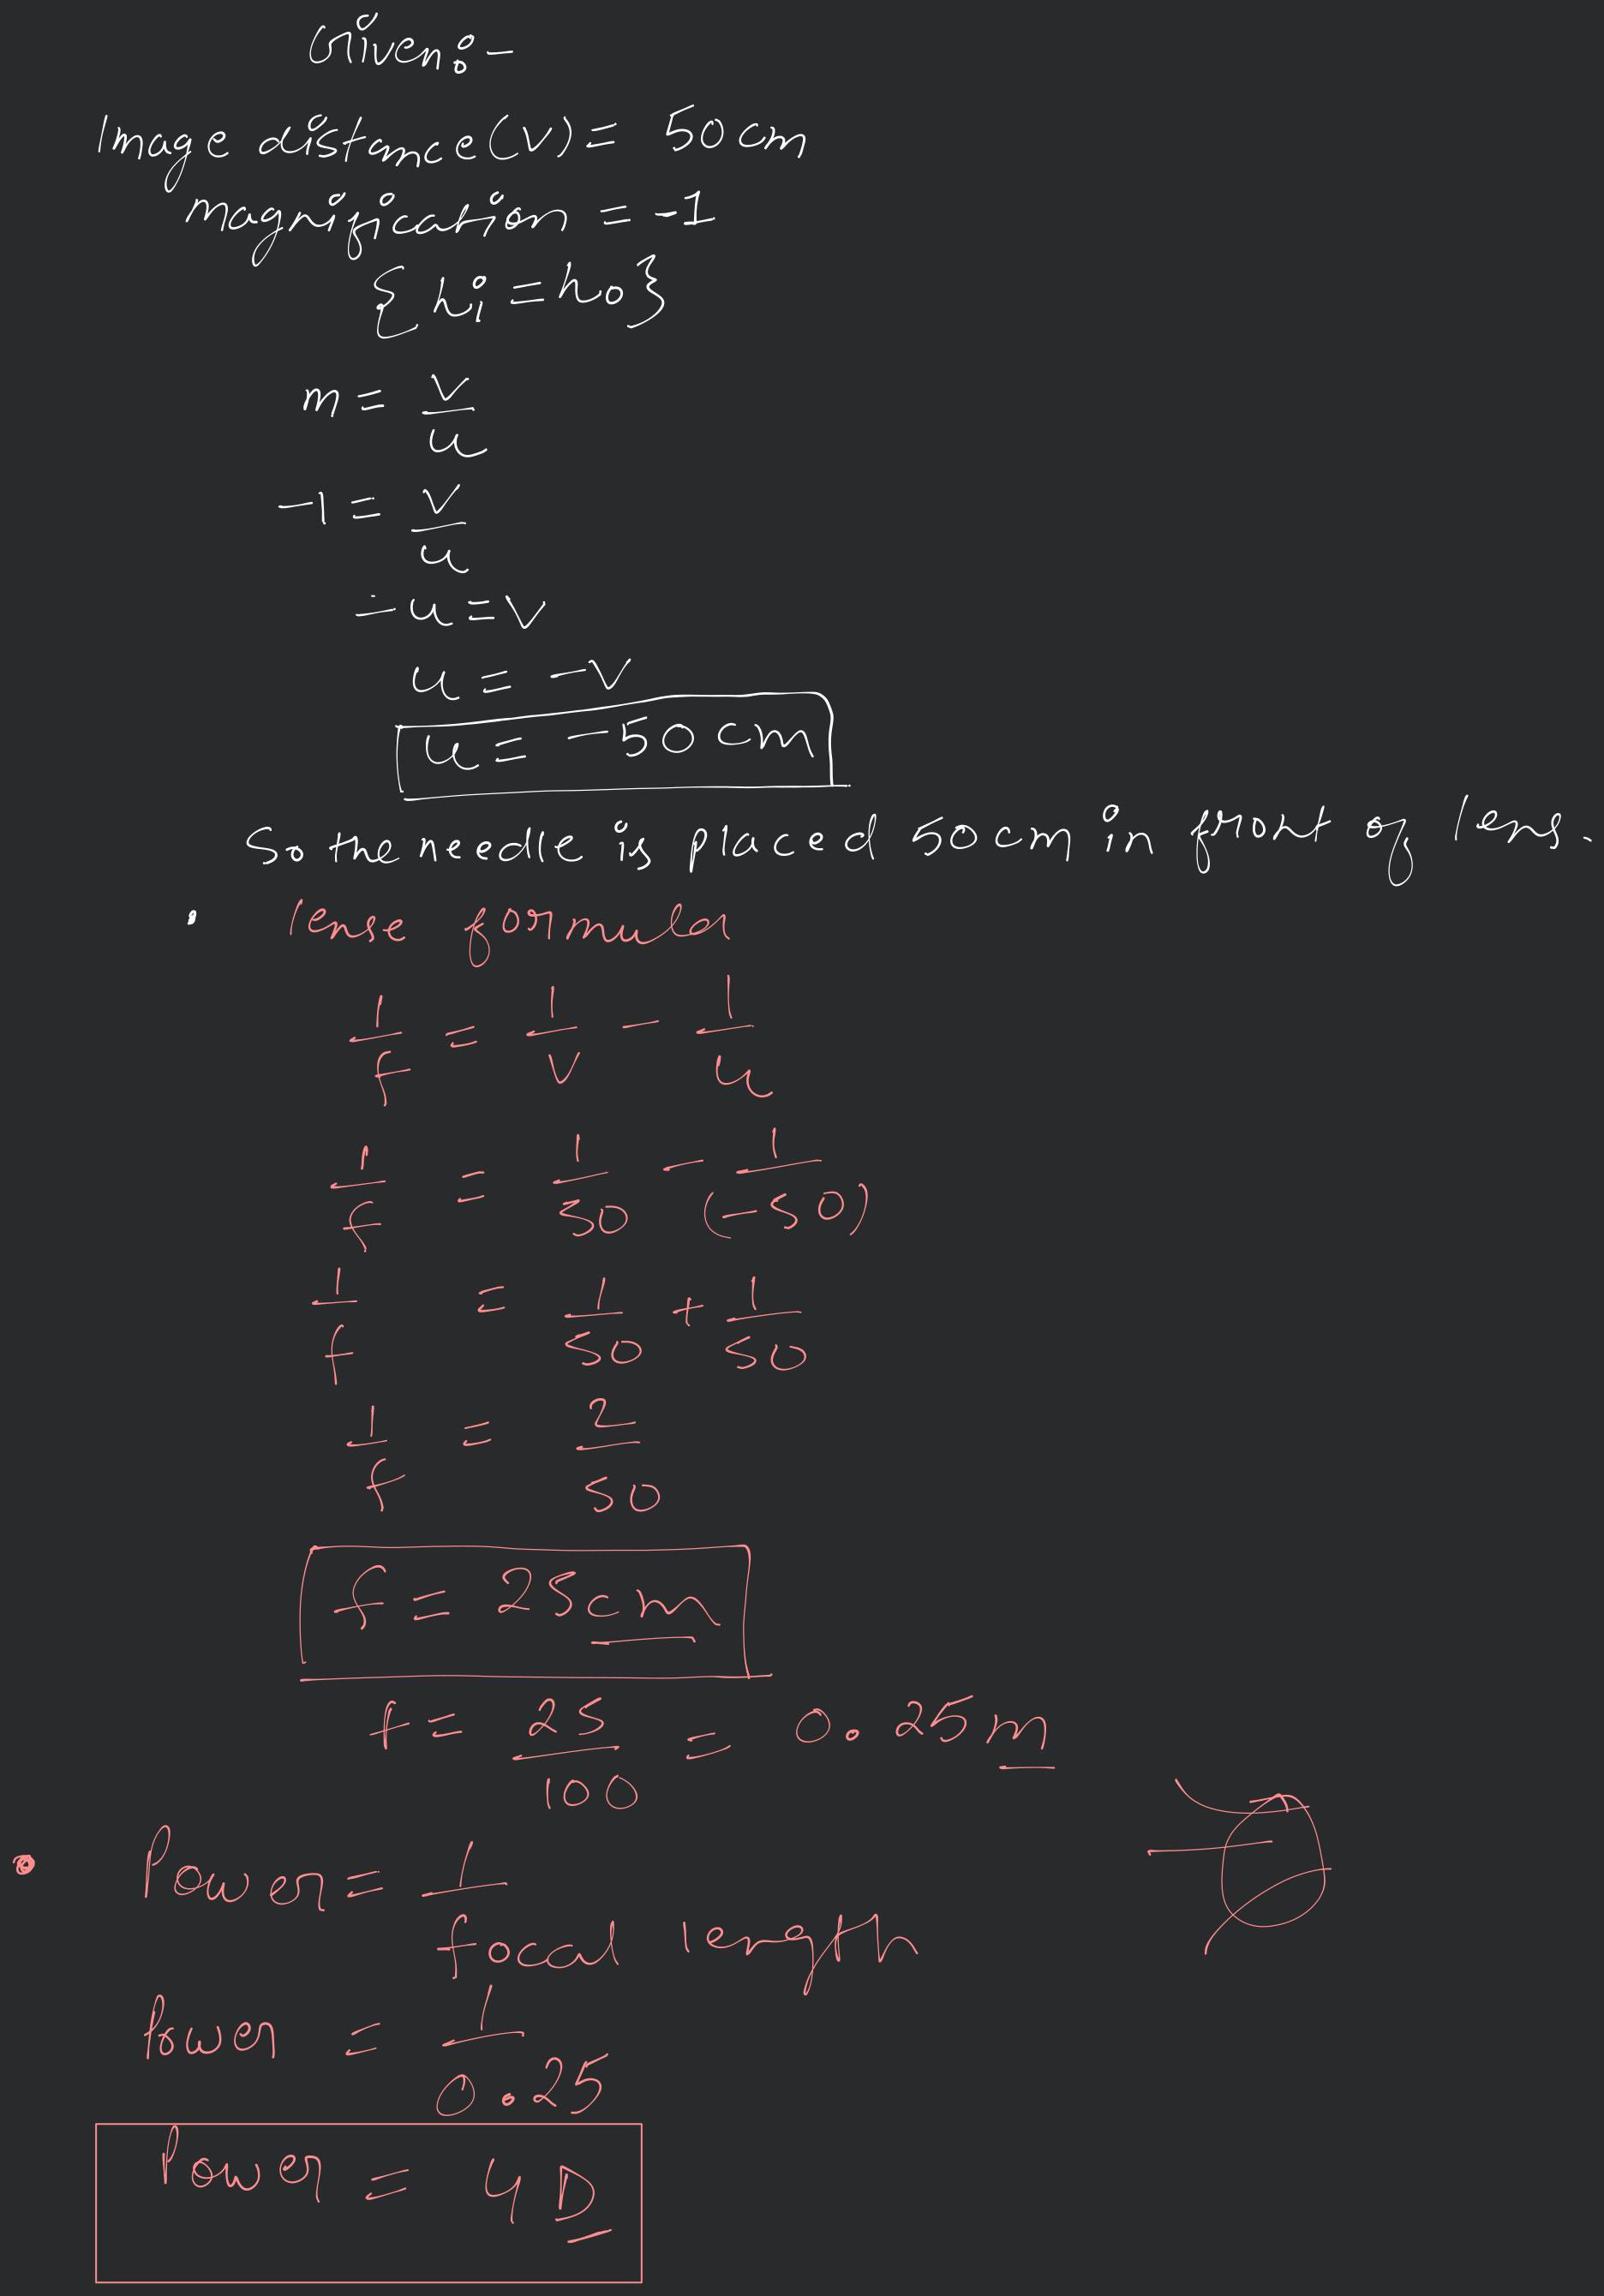 Given:-
Image distance(v) = 50 cm
magnification = -1
{hi = ho}
m = v/u
-1 = v/u
-u = v
u = -v
u = -50 cm
So the needle is placed 50 cm in front of lens.
• lense formula
1/f = 1/v - 1/u
1/f = 1/50 - 1/(-50)
1/f = 1/50 + 1/50
1/f = 2/50
f = 25 cm
f = 25/100 = 0.25 m
• Power = 1/focal length
Power = 1/0.25
Power = 4 D